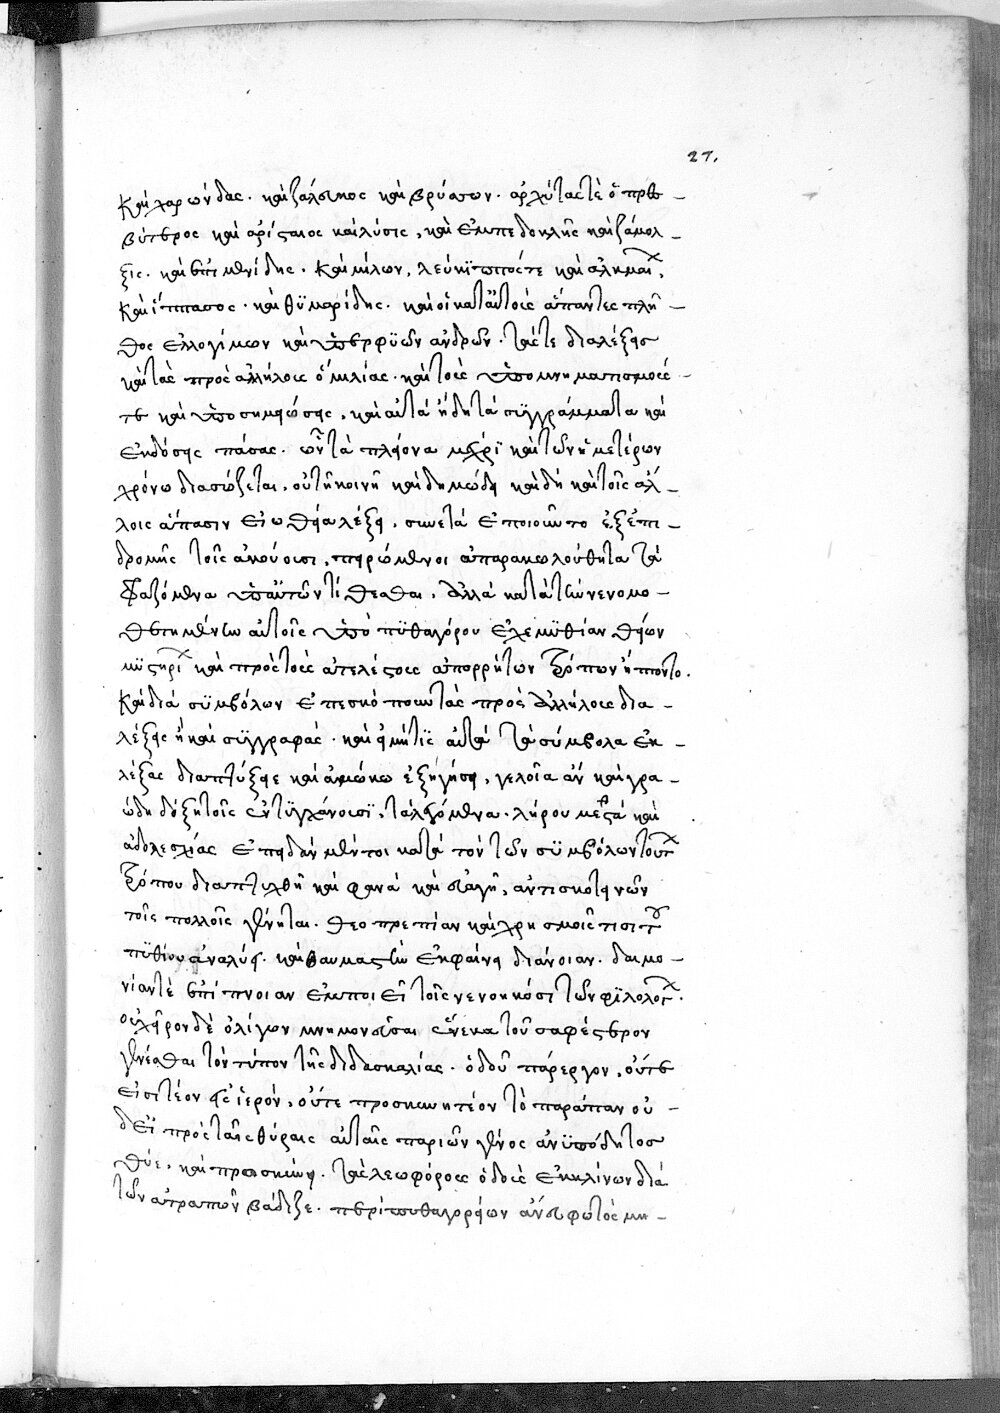 27.
καὶ χαρώνδας. καὶ ζάλευκος καὶ βρύσων. ἀρχύτας τὲ ὁ πρεσ-
βύτερος καὶ ἀρίσταιος καὶ λύσις, καὶ ἐμπεδοκλῆς καὶ ζάμολ-
ξις. καὶ ἐπιμενίδης. καὶ μίλων, λεύκιππός τε καὶ ἀλκμαί,
καὶ ἵππασος. καὶ θυμαρίδης. καὶ οἱ κατ' αὐτοὺς ἅπαντες πλῆ-
θος ἐλλογίμων καὶ ὑπερφυῶν ἀνδρῶν. τάς τε διαλέξεις
καὶ τὰς πρὸς ἀλλήλους ὁμιλίας. καὶ τοὺς ὑπομνηματισμούς
τε καὶ ὑποσημειώσεις, καὶ αὐτὰ ἤδη τὰ συγγράμματα καὶ
ἐκδόσεις πάσας. ὧν τὰ πλείονα μέχρι καὶ τῶν ἡμετέρων
χρόνω διασώζεται, οὐ τῆ κοινῆ καὶ δημώδει καὶ δὴ καὶ τοῖς ἄλ-
λοις ἅπασιν εἰωθυία λέξει, συνετὰ ἐποιοῦντο ἐξ ἐπι-
δρομῆς τοῖς ἀκούουσι, πειρώμενοι ἀπαρακολούθητα τὰ
φραζόμενα ὑπ' αὐτῶν τίθεσθαι, ἀλλὰ κατὰ τὴν νενομο-
θετημένην αὐτοῖς ὑπὸ πυθαγόρου ἐχεμυθίαν θείων
μυστηρί καὶ πρὸς τοὺς ἀτελέστους ἀπορρήτων τρόπων ἥπτοντο.
καὶ διὰ συμβόλων ἐπέσκεπον τὰς πρὸς ἀλλήλους δια-
λέξεις ἢ καὶ συγγραφάς. καὶ εἰ μή τις αὐτὰ τὰ σύμβολα ἐκ-
λέξας διαπτύξειε καὶ ἀμώκω ἐξηγήσει, γελοῖα ἂν καὶ γρα-
ώδη δόξη τοῖς ἐντυγχάνουσι, τὰ λεγόμενα. λήρου μεστὰ καὶ
ἀδολεσχίας ἐπειδὰν μέντοι κατὰ τὸν τῶν συμβόλων τούτ
τρόπου διαπτυχθῆ καὶ φανὰ καὶ εὐαγῆ, ἀντὶ σκοτεινῶν
τοῖς πολλοῖς γένηται. θεοπρεπίαν καὶ χρησμοῖς τισι τοῦ
πυθίου ἀναλύει. καὶ θαυμαστὴν ἐκφαίνει διάνοιαν. δαιμο-
νίαν τὲ ἐπίπνοιαν ἐμποιεῖ τοῖς νενοηκόσι τῶν φιλολόγ.
οὐ χεῖρον δὲ ὀλίγων μνημονεῦσαι ἕνεκα τοῦ σαφέστερον
γενέσθαι τὸν τύπον τῆς διδασκαλίας. ὁδοῦ πάρεργον, οὔτε
εἰσιτέον εἰς ἱερόν, οὔτε προσκυνητέον τὸ παράπαν οὐ-
δεῖ πρὸς ταῖς θύραις αὐταῖς παριὼν γένος ἀνυπόδητος
θύε, καὶ προσκύνει. τὰς λεωφόρους ὁδοὺς ἐκκλίνων διὰ
τῶν ἀτραπῶν βάδιζε. περὶ πυθαγορείων ἄνευ φωτὸς μη-